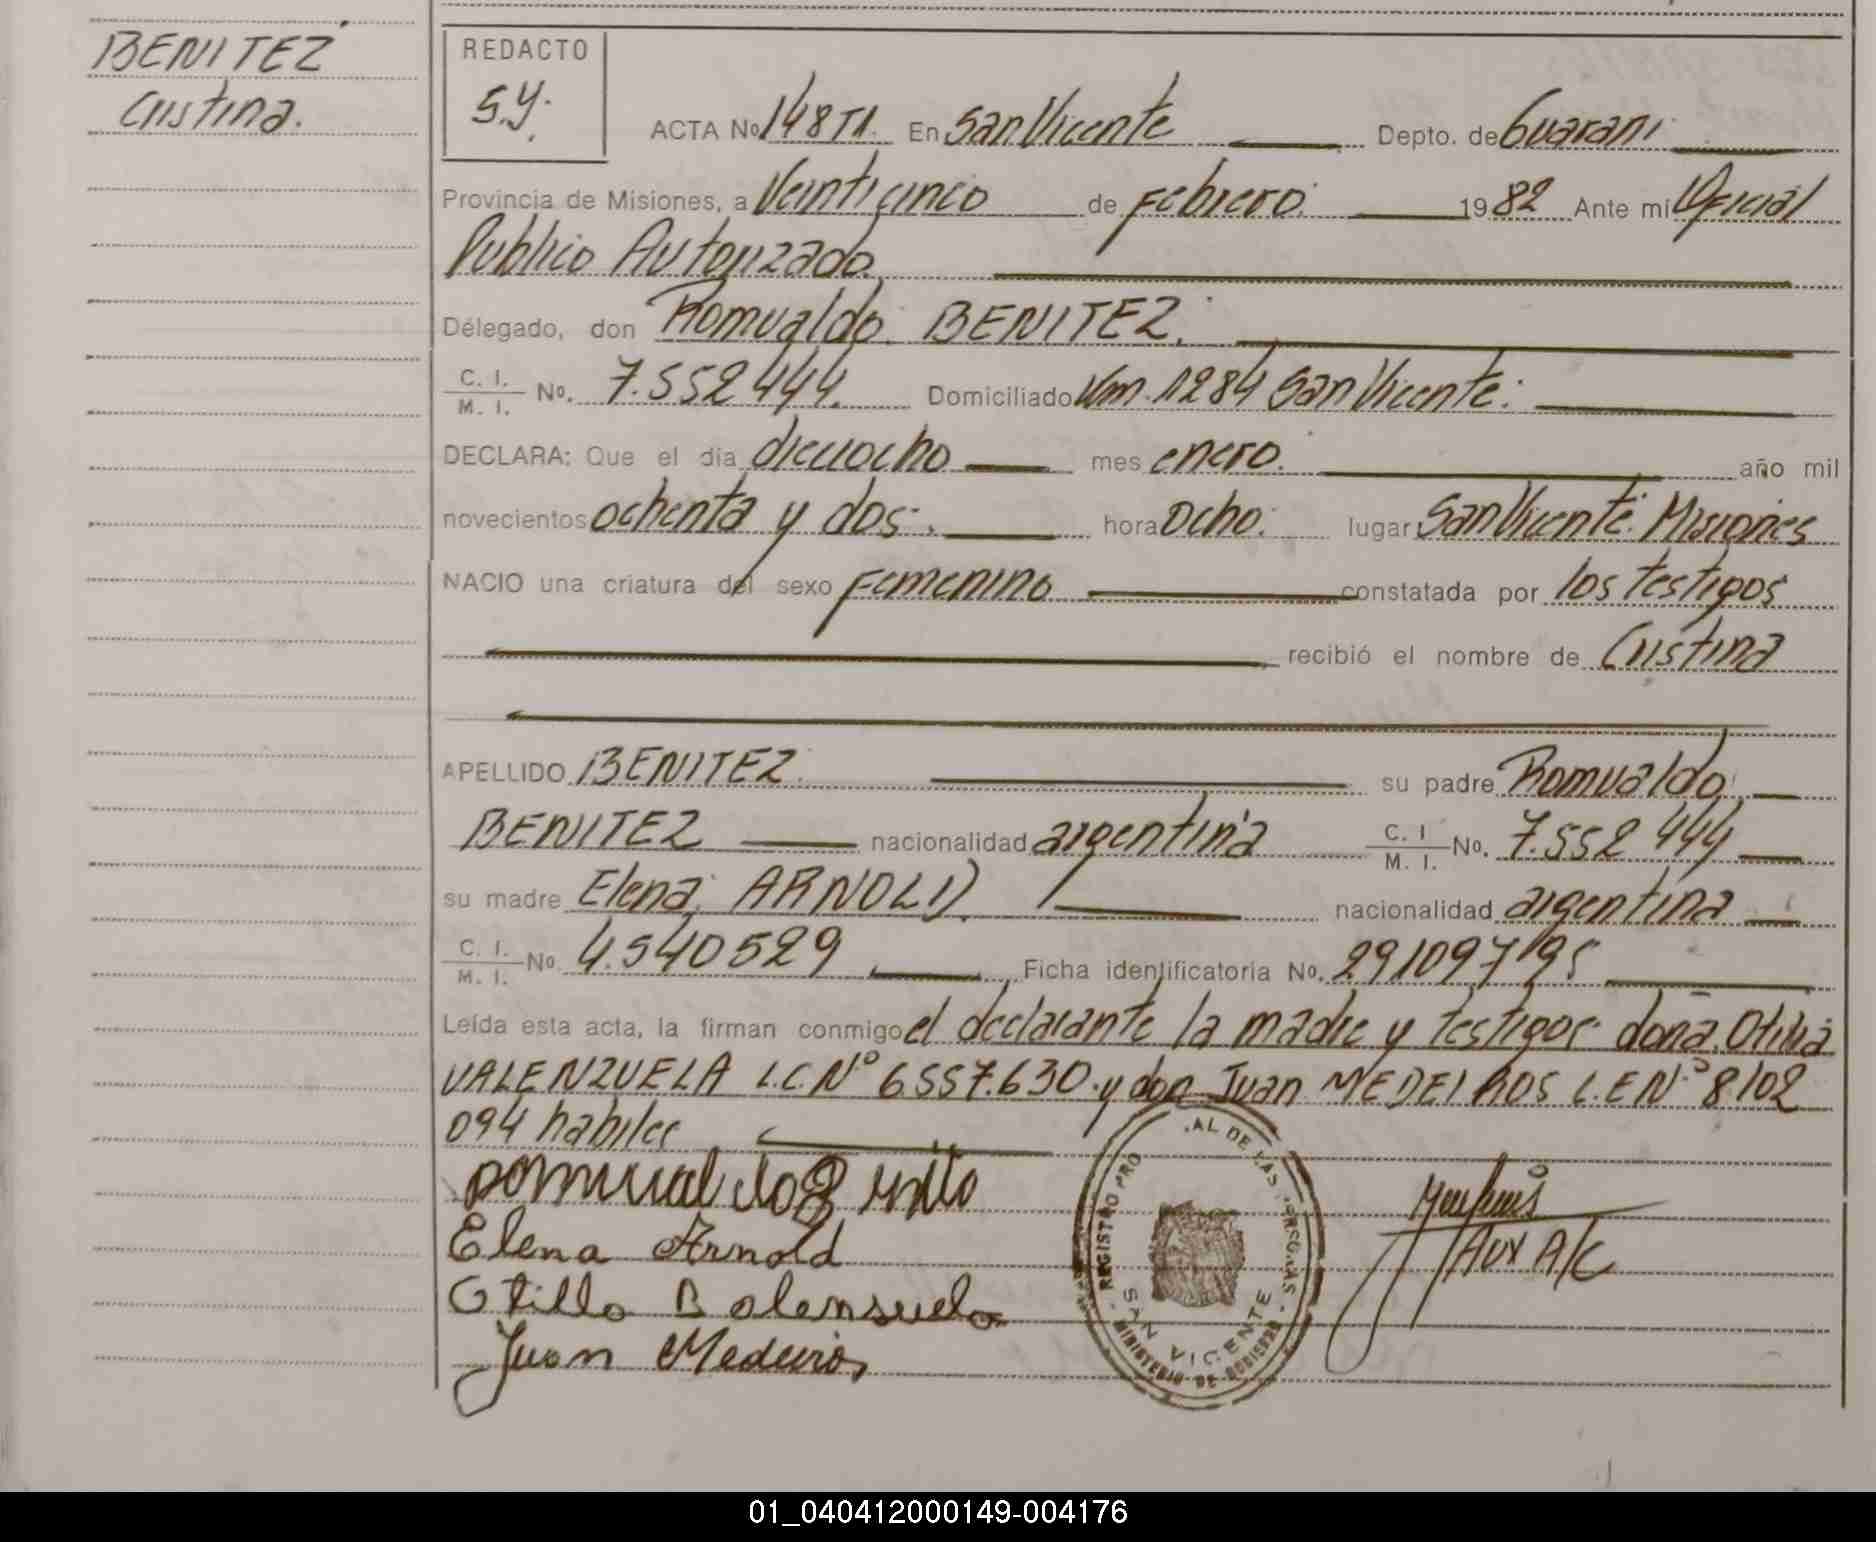 BENITEZ
Cristina.
REDACTO
S.Y.
ACTA No 148 T1. En San Vicente Depto. de Guarani
Provincia de Misiones, a Veinticinco de Febrero. 1982 Ante mi Oficial
Publico Autorizado
Delegado, don Romualdo BENITEZ.
C. I. / M. I. No. 7.552444. Domiciliado Km. 1284 San Vicente.
DECLARA: Que el dia dieciocho mes enero. año mil
novecientos ochenta y dos. hora ocho. lugar San Vicente. Misiones
NACIO una criatura del sexo Femenino constatada por los testigos
recibió el nombre de Cristina
APELLIDO BENITEZ su padre Romualdo
BENITEZ nacionalidad argentina C. I / M. I. No. 7.552 444
su madre Elena ARNOLD. nacionalidad argentina
C. I. / M. I. No 4.540529 Ficha identificatoria No. 29109795
Leída esta acta, la firman conmigo el declarante la madre y testigos doña Otilia
VALENZUELA L.C.Nº 6.557.630. y don Juan MEDEIROS L.E Nº 8102
094 habiles
Elena Arnold
Juan Medeiros
Aux A/C
REGISTRO PRO AL DE LAS PERSONAS
SAN VICENTE
MINISTERIO DE GOBIERNO
01_040412000149-004176